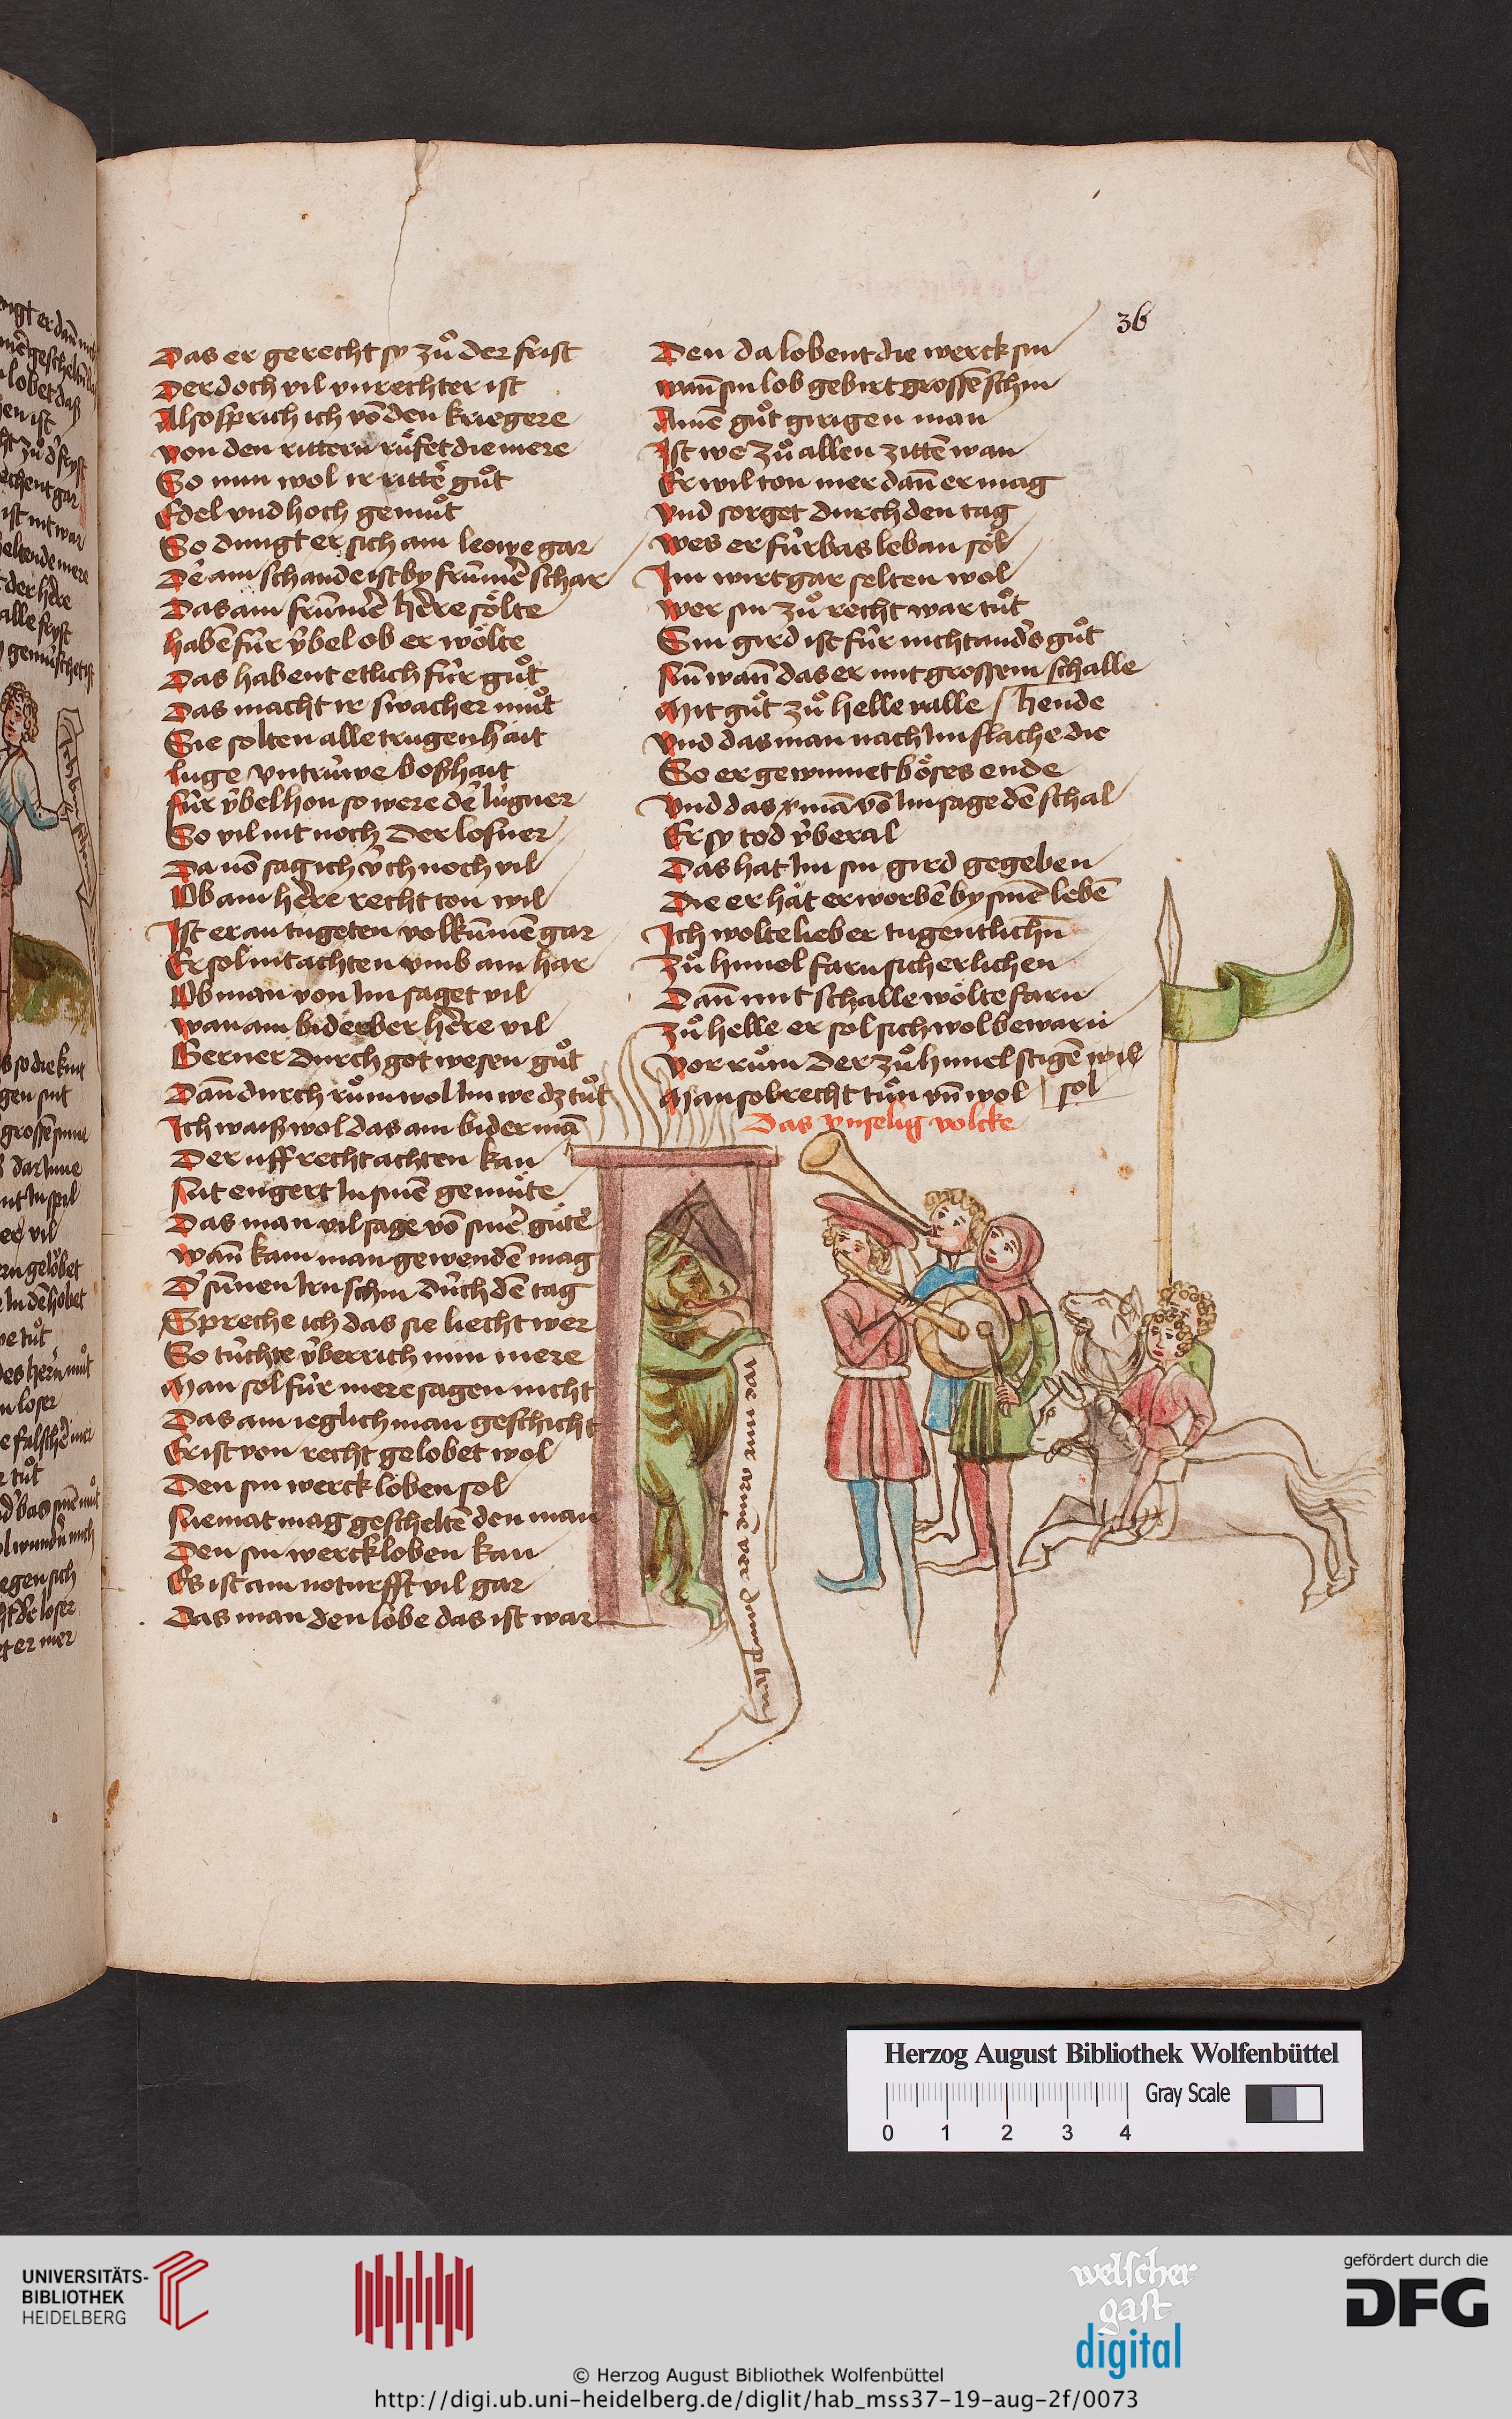 36
Das er gerecht sy zuͦ der frist
Der doch vil vnrechter ist
Also sprich ich vō den kriegere
von den rittern ruͤfet die mere
So nun wol ir rittē guͦt
Edel vnd hoch gemuͦt
So dungt er sich ain leowe gar
Dē ain schande ist by frūmē schar
Das ain frūmē hēre soͤlte
habē fúr v́bel ob er woͤlte
Das habent etlich fúr guͦt
Das macht ir swacher muͦt
Sie solten alle trugenhait
luge vntrúwe boßhait
fúr v́bel hon so were dē lúgner
So vil nit noch der losner
Da vō sag ich v́ch noch vil
Ob ain hēre recht ton wil
Ist er an tugeten volkūmē gar
Er sol nit achten vmb ain har
Ob man von Im saget vil
wan ain biderber hēre vil
Gerner durch got wesen guͦt
Dañ durch ruͦm wol Im we dz tuͦt
Ich waiß wol das ain bidermā
Der uff recht achten kan
Nit engert In sinē gemuͤte
Das man vil sage vō sinē guͤte
wañ kam man gewenden mag
D' sunnen Irn schin durch dē tag
Spreche ich das sie liecht wer
So túchte v́berrich min mere
Man sol fúr mere sagen nicht
Das ain ieglich man geschicht
Er ist von recht gelobet wol
Den sin werck loben sol
Niemat mag gescheltē den man
Den sin werck loben kan
Es ist ain noturfft vil gar
Das man den lobe das ist war
Den da lobent die werck sin
wañ sin lob gebirt grossē schin
Aimē guͦt girigen man
Ist we zuͦ allen zittē wan
Er wil ton mer dañ er mag
vnd sorget durch den tag
wes er fúrbas leban soͤl
Im wirt gar selten wol
wer sin zuͦ recht war tuͦt
Sin gird ist fúr nicht and's guͦt
Nūn wañ das er mit grossem schalle
Mit guͦt zuͦ helle valle / hende
vnd das man nach Im slache die
So er gewinnet boͤses ende
vnd das man vō Im sage dē schal
Er sy tod v́beral
Das hat Im sin gird gegeben
Die er hat erworbē by sinē lebē
Ich wolte lieber tugentlichn̄
zuͦ himel farn sicherlichen
Dañ mit schalle woͤlte farn
zuͦ helle er sol sich wol bewarn
vor ruͦm der zuͦ himel stigē wil
Man sol recht tuͦn vñ wol / sol
Das vnselig volcke
we mir armē der dampken
Herzog August Bibliothek Wolfenbüttel
Gray Scale
0 1 2 3 4
UNIVERSITÄTS-
BIBLIOTHEK
HEIDELBERG
welscher
gast
digital
gefördert durch die
DFG
© Herzog August Bibliothek Wolfenbüttel
http://digi.ub.uni-heidelberg.de/diglit/hab_mss37-19-aug-2f/0073